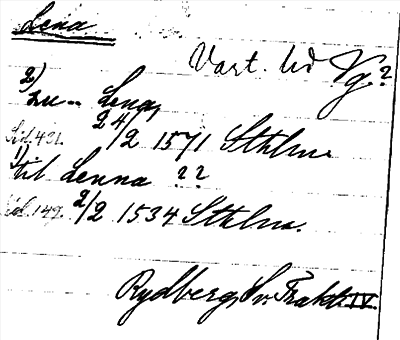 Lena
Vart. tid Vg?
2)
zu -- Lena,
Sid. 431. 24/2 1571 Sthlm.
1)
til Lenna ??
Sid. 149. 2/2 1534 Sthlm.
Rydberg, Sv. Trakt. IV.